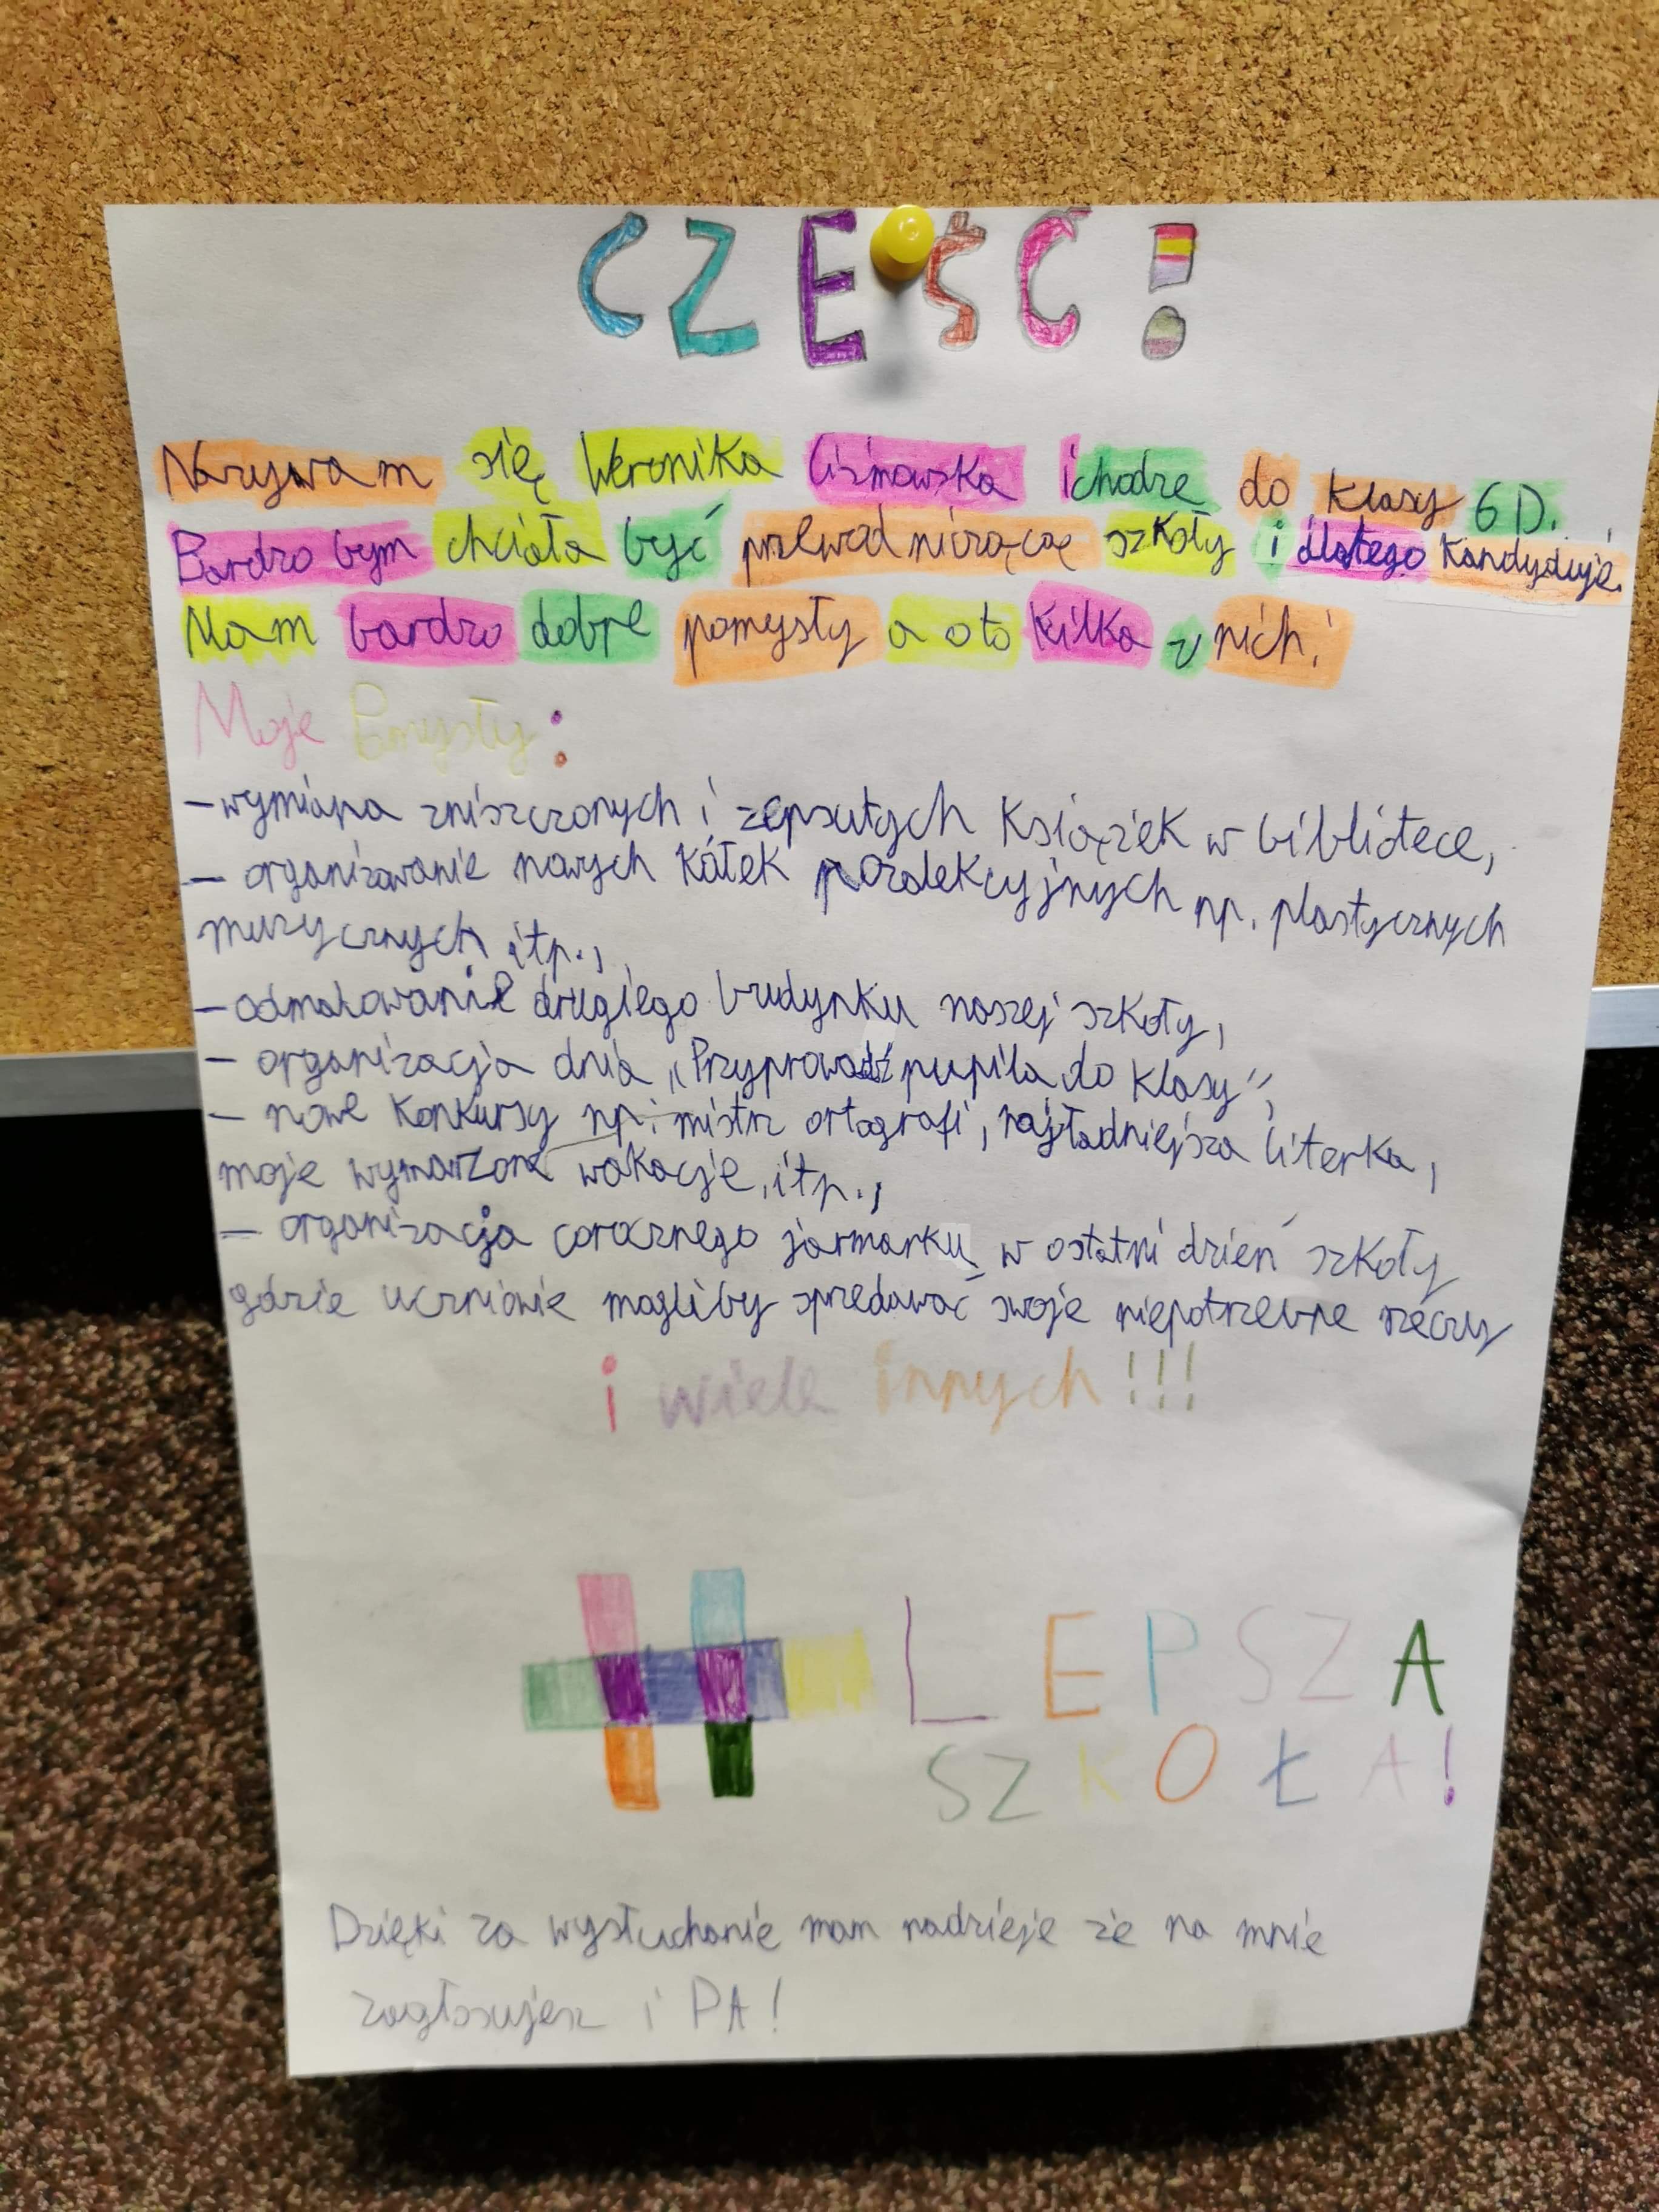 CZEŚĆ!
Nazywam się Weronika Ciżmowska i chodzę do klasy 6D.
Bardzo bym chciała być przewodniczącą szkoły i dlatego kandyduje.
Mam bardzo dobre pomysły a oto kilka z nich:
Moje Pomysły:
- wymiana zniszczonych i zepsutych książek w bibliotece,
- organizowanie nowych kółek pozalekcyjnych np. plastycznych
muzycznych itp.,
- odmalowanie drugiego budynku naszej szkoły,
- organizacja dnia „Przyprowadź pupila do klasy",
- nowe konkursy np: mistrz ortografi, najładniejsza literka,
moje wymarzone wakacje, itp.,
- organizacja corocznego jarmarku w ostatni dzień szkoły
gdzie uczniowie mogliby spredawać swoje niepotrzebne rzeczy
i wiele innych!!!
# LEPSZA
SZKOŁA!
Dzięki za wysłuchanie mam nadzieje że na mnie
zagłosujesz i PA!